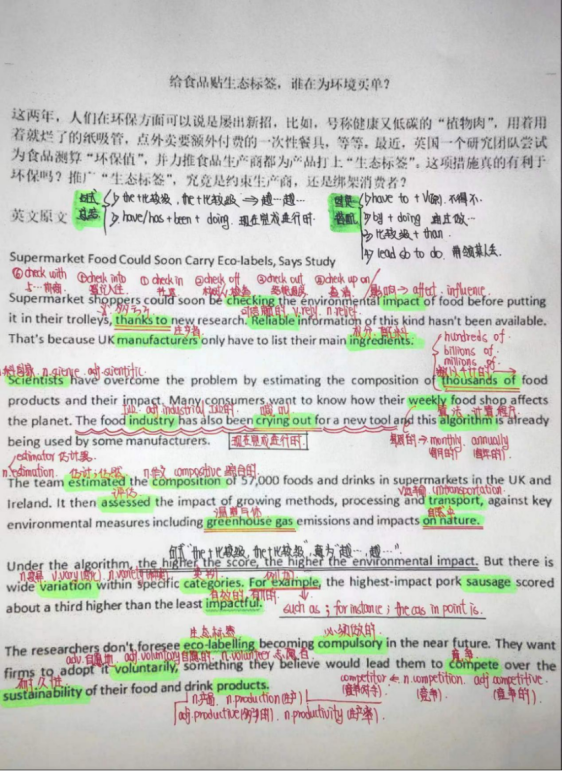 给食品贴生态标签，谁在为环境买单？
这两年，人们在环保方面可以说是屡出新招，比如，号称健康又低碳的“植物肉”，用着用
着就烂了的纸吸管，点外卖要额外付费的一次性餐具，等等。最近，英国一个研究团队尝试
为食品测算“环保值”，并力推食品生产商都为产品打上“生态标签”。这项措施真的有利于
环保吗？推广“生态标签”，究竟是约束生产商，还是绑架消费者？
the+比较级，the+比较级 ⇒ 越…越…
have to + V原. 不得不.
英文原文
have/has + been + doing. 现在完成进行时.
by + doing
比较级 + than.
lead sb to do. 带领某人去.
Supermarket Food Could Soon Carry Eco-labels, Says Study
①check with ②check into ③check in ④check off ⑤check out ⑥check up on
affect. influence.
Supermarket shoppers could soon be checking the environmental impact of food before putting
it in their trolleys, thanks to new research. Reliable information of this kind hasn't been available.
That's because UK manufacturers only have to list their main ingredients.
hundreds of
billions of
millions of
Scientists have overcome the problem by estimating the composition of thousands of food
products and their impact. Many consumers want to know how their weekly food shop affects
the planet. The food industry has also been crying out for a new tool and this algorithm is already
being used by some manufacturers.
现在完成进行时
monthly annually
estimator 估计员
n.estimation.
The team estimated the composition of 57,000 foods and drinks in supermarkets in the UK and
Ireland. It then assessed the impact of growing methods, processing and transport, against key
environmental measures including greenhouse gas emissions and impacts on nature.
句式“the+比较级，the+比较级”，意为“越…，越…”.
Under the algorithm, the higher the score, the higher the environmental impact. But there is
wide variation within specific categories. For example, the highest-impact pork sausage scored
about a third higher than the least impactful.
such as ; for instance ; the cas in point is.
生态标签
The researchers don't foresee eco-labelling becoming compulsory in the near future. They want
firms to adopt it voluntarily, something they believe would lead them to compete over the
sustainability of their food and drink products.
competitor ← n.competition. adj competitive.
n.production(生产)
adj.productive n.productivity(生产率).